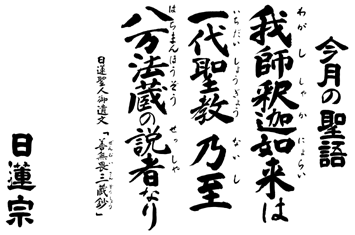 今月の聖語
我師釈迦如来は
わがししゃかにょらい
一代聖教 乃至
いちだいしょうぎょう ないし
八万法蔵の説者なり
はちまんほうぞう せっしゃ
日蓮聖人御遺文「善無畏三蔵鈔」
ぜんむいさんぞうしょう
日蓮宗